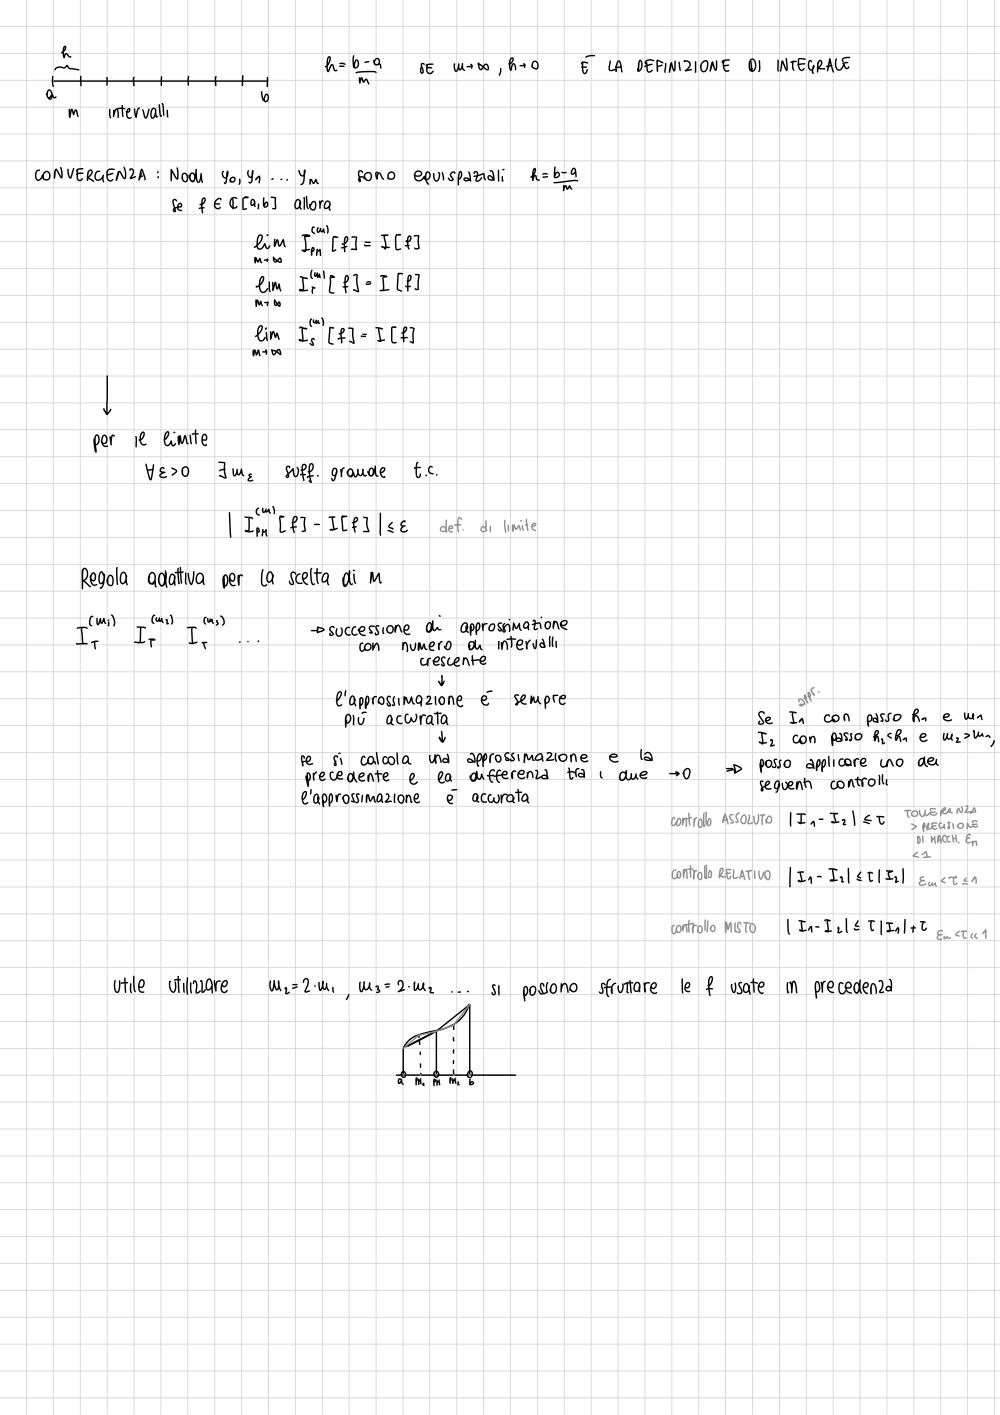 h
a b
m intervalli
h = b-a/m SE m→∞, h→0 È LA DEFINIZIONE DI INTEGRALE
CONVERGENZA : Nodi y₀, y₁ ... yₘ sono equispaziali h = b-a/m
Se f ∈ ℂ[a,b] allora
lim m→∞ I_PM^(m) [f] = I[f]
lim m→∞ I_T^(m) [f] = I[f]
lim m→∞ I_S^(m) [f] = I[f]
↓
per il limite
∀ε>0 ∃m_ε suff. grande t.c.
| I_PM^(m) [f] - I[f] | ≤ ε def. di limite
Regola adattiva per la scelta di m
I_T^(m₁) I_T^(m₂) I_T^(m₃) ...
→ successione di approssimazione
con numero di intervalli
crescente
↓
l'approssimazione è sempre
più accurata
↓
se si calcola una approssimazione e la
precedente e la differenza tra i due →0
l'approssimazione è accurata
appr.
⇒ Se I₁ con passo h₁ e m₁
I₂ con passo h₂<h₁ e m₂>m₁,
posso applicare uno dei
seguenti controlli
controllo ASSOLUTO |I₁-I₂| ≤ τ TOLLERANZA
> PRECISIONE
DI MACCH. εm
<1
controllo RELATIVO |I₁-I₂| ≤ τ|I₂| εm<τ≤1
controllo MISTO |I₁-I₂| ≤ τ|I₁|+τ εm<τ≪1
utile utilizzare m₂=2·m₁, m₃=2·m₂ ... si possono sfruttare le f usate in precedenza
a m₁ m m₂ b